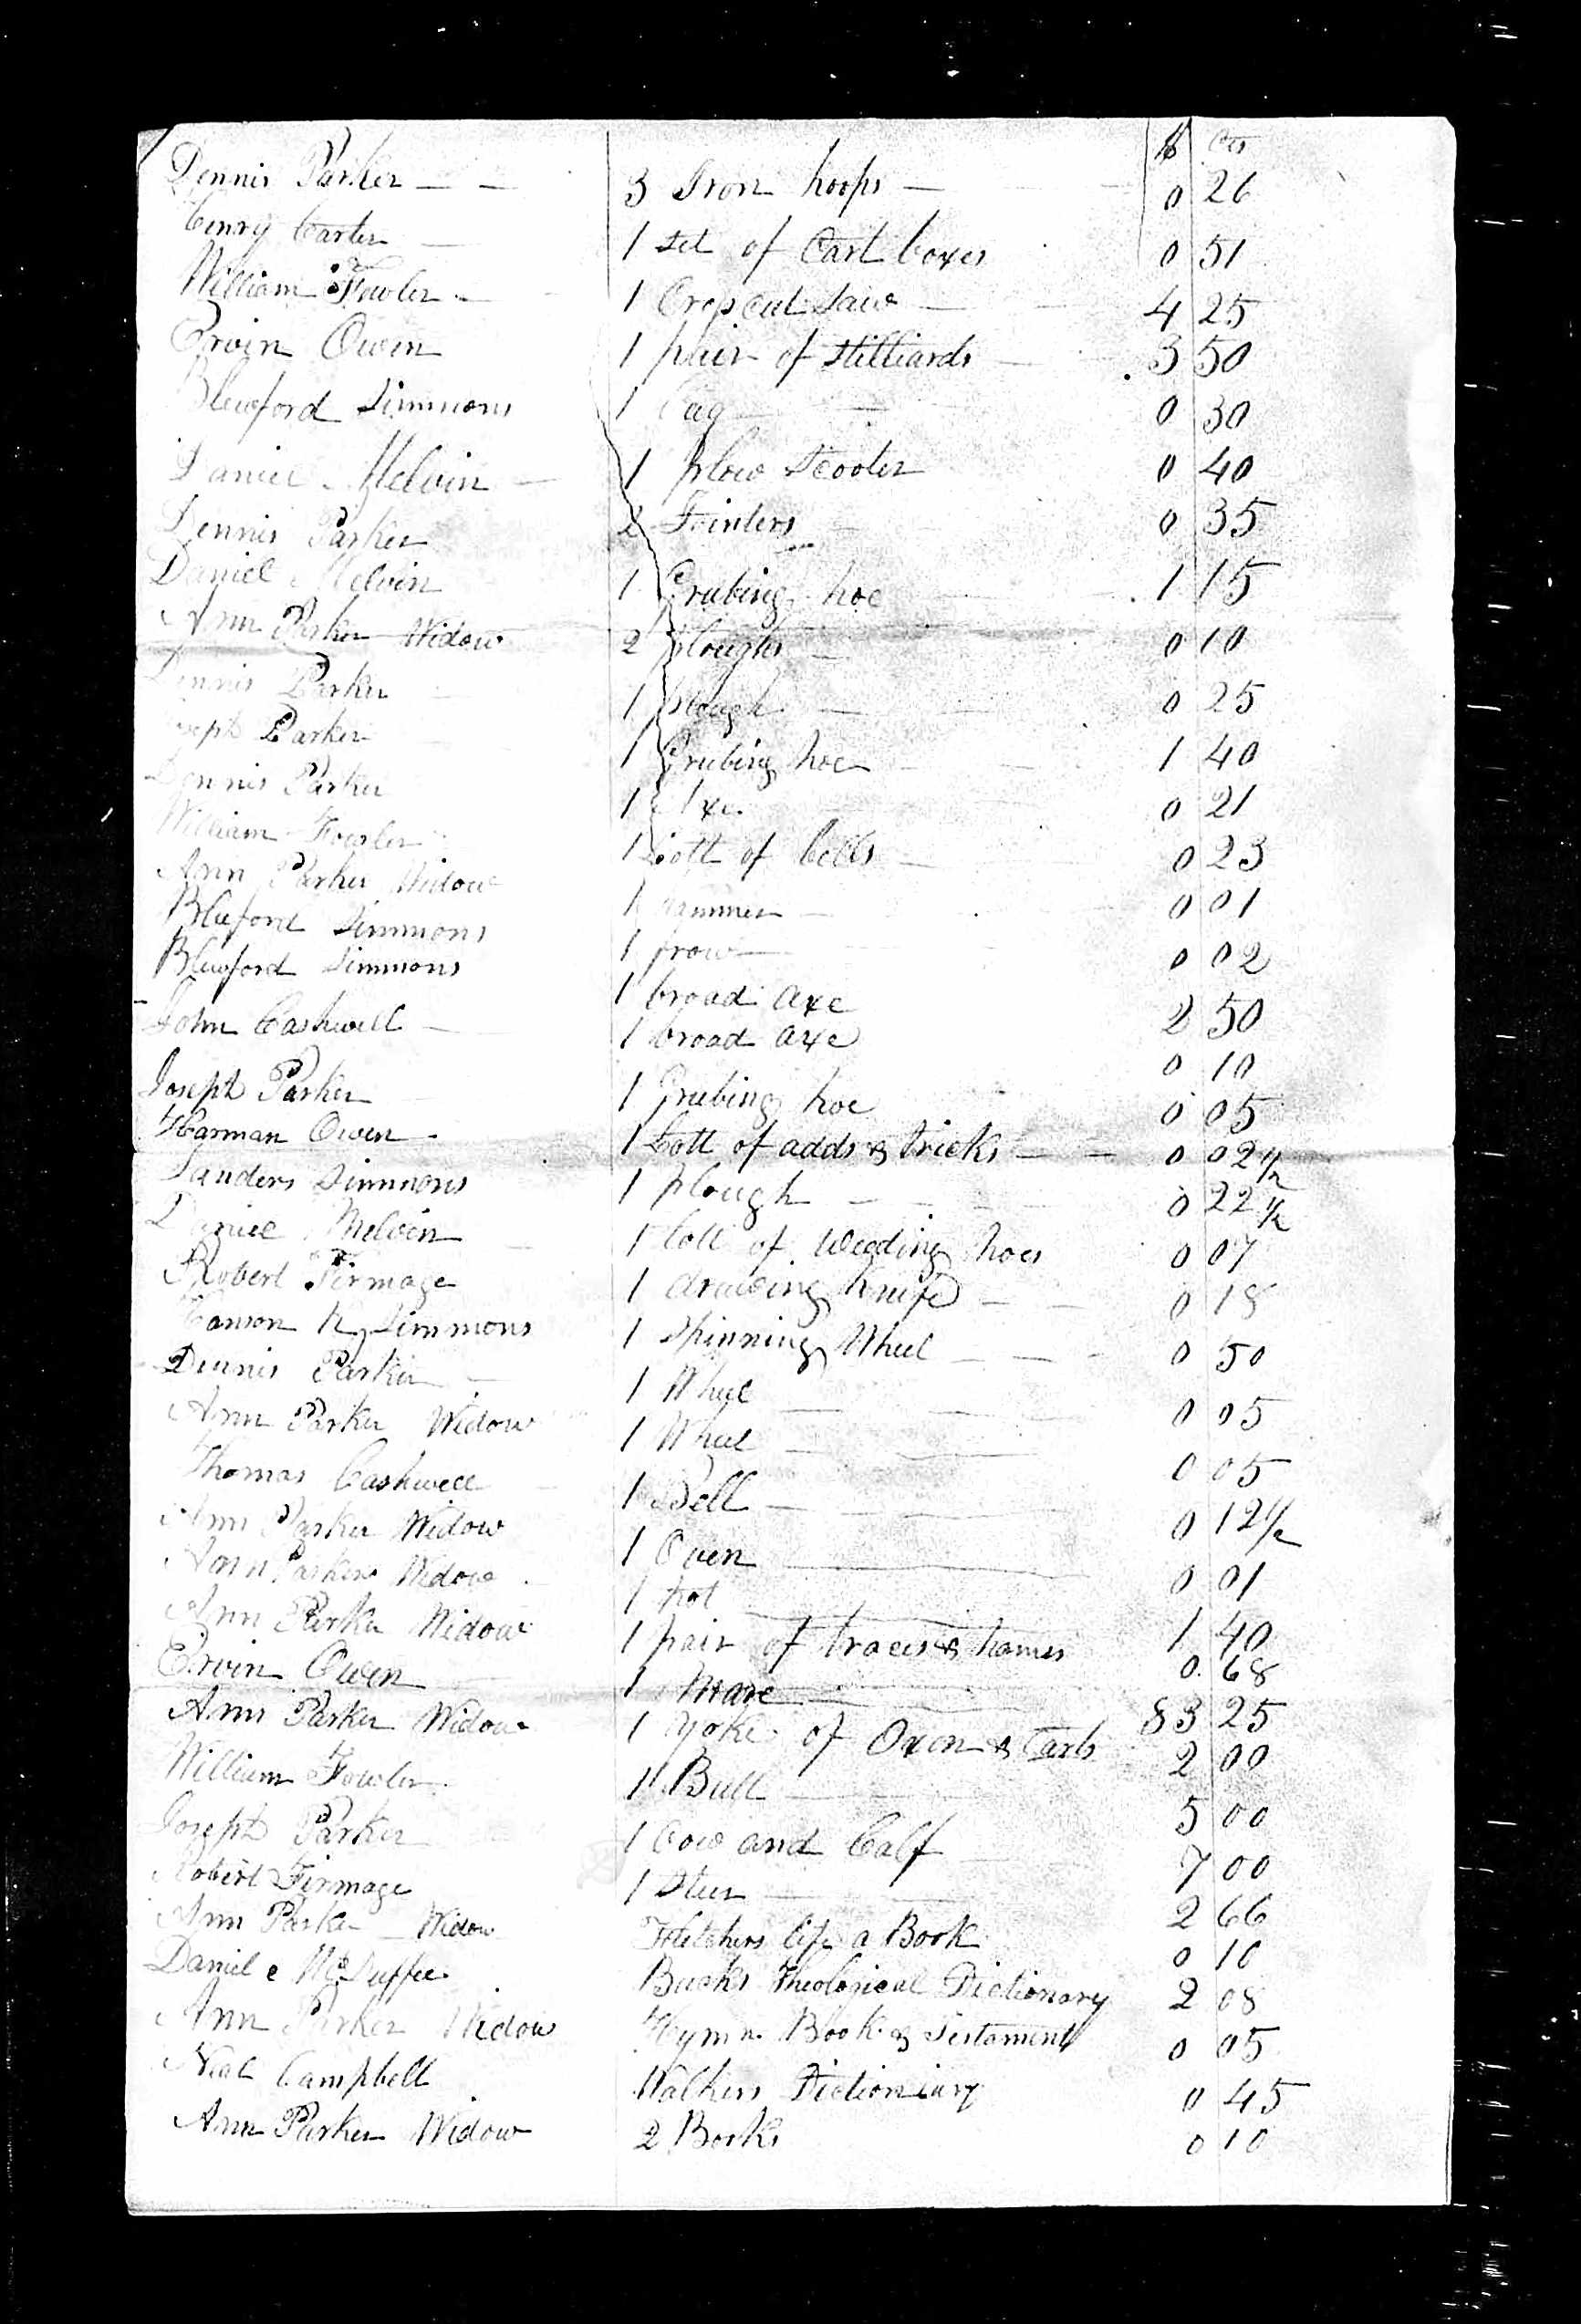 $ Cts
Dennis Parker — — 3 Iron hoops — 0 26
Henry Carter — 1 Set of Cart boxes 0 51
William Fowler — 1 Crop cut Saw — 4 25
Ervin Owen 1 pair of Stilliards — 3 50
Blewford Simmons 1 Cag — 0 30
Daniel Melvin — 1 plow Scooter 0 40
Dennis Parker 2 Jointers — 0 35
Daniel Melvin 1 Grubing hoe 1 15
Ann Parker Widow 2 ploughs — 0 10
Dennis Parker 1 plough — 0 25
Joseph Parker 1 Grubing hoe — 1 40
Dennis Parker 1 Axe 0 21
William Fowler 1 Lott of bells — 0 23
Ann Parker Widow 1 hammer — 0 01
Bluford Simmons 1 frow — 0 02
Blewford Simmons 1 broad axe 2 50
John Cashwell — 1 broad axe 0 10
Joseph Parker 1 Grubing hoe 0 05
Harman Owen — 1 Lott of adds & tricks — — 0 02 1/2
Sanders Simmons 1 plough — 0 22 1/2
Daniel Melvin 1 lott of weeding hoes 0 07
Robert Firmage 1 drawing knife — 0 18
K Simmons 1 Spinning Wheel — 0 50
Dennis Parker — 1 Wheel — 0 05
Ann Parker Widow 1 Wheel — 0 05
Thomas Cashwell 1 Bell — 0 12 1/2
Ann Parker Widow 1 Oven — 0 01
Ann Parker Widow 1 pot — 1 40
Ann Parker Widow 1 pair of traces & hames 0 68
Ervin Owen 1 Mare — 83 25
Ann Parker Widow 1 Yoke of Oxen & Cart 2 00
William Fowler 1 Bull — 5 00
Joseph Parker 1 Cow and Calf 7 00
Robert Firmage 1 Steer — 2 66
Ann Parker Widow Fletchers life a Book 0 10
Daniel McDuffee Bucks Theological Dictionary 2 08
Ann Parker Widow Hymn Book & Testament 0 05
Neal Campbell Walkers Dictionary 0 45
Ann Parker Widow 2 Books 0 10